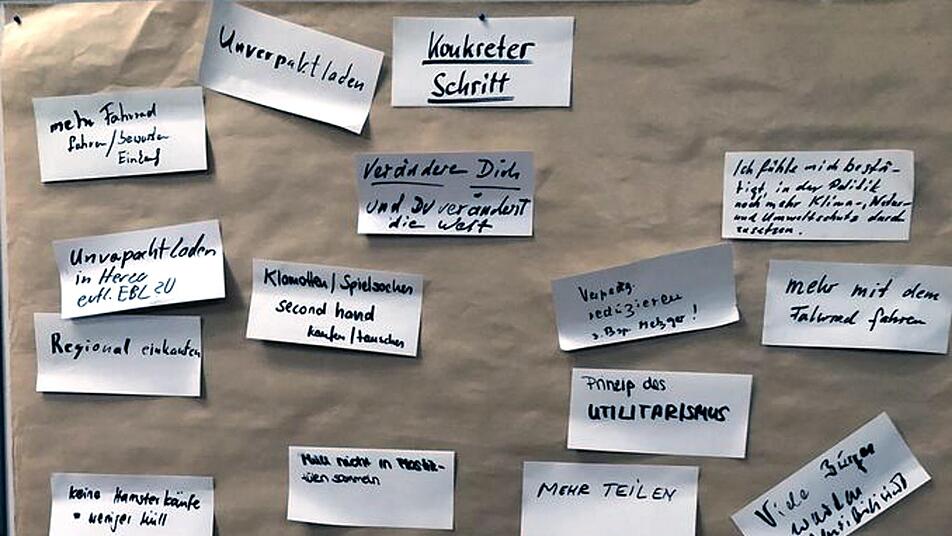 Unverpaktladen
Konkreter
Schritt
mehr Fahrrad
fahren/bewusster
Einkauf
Verändere Dich
und Du veränderst
die Welt
Ich fühle mich bestä-
tigt, in der Politik
noch mehr Klima-, Natur-
und Umweltschutz durch
zusetzen.
Unverpacktladen
in
evtl. EBL
Klamotten/Spielsachen
second hand
kaufen/tauschen
reduzieren
z.Bsp. Metzger!
mehr mit dem
Fahrrad fahren
Regional einkaufen
Prinzip des
UTILITARISMUS
keine Hamsterkäufe
weniger Müll
Müll nicht in Plastik-
tüten sammeln
MEHR TEILEN
Viele Bürger